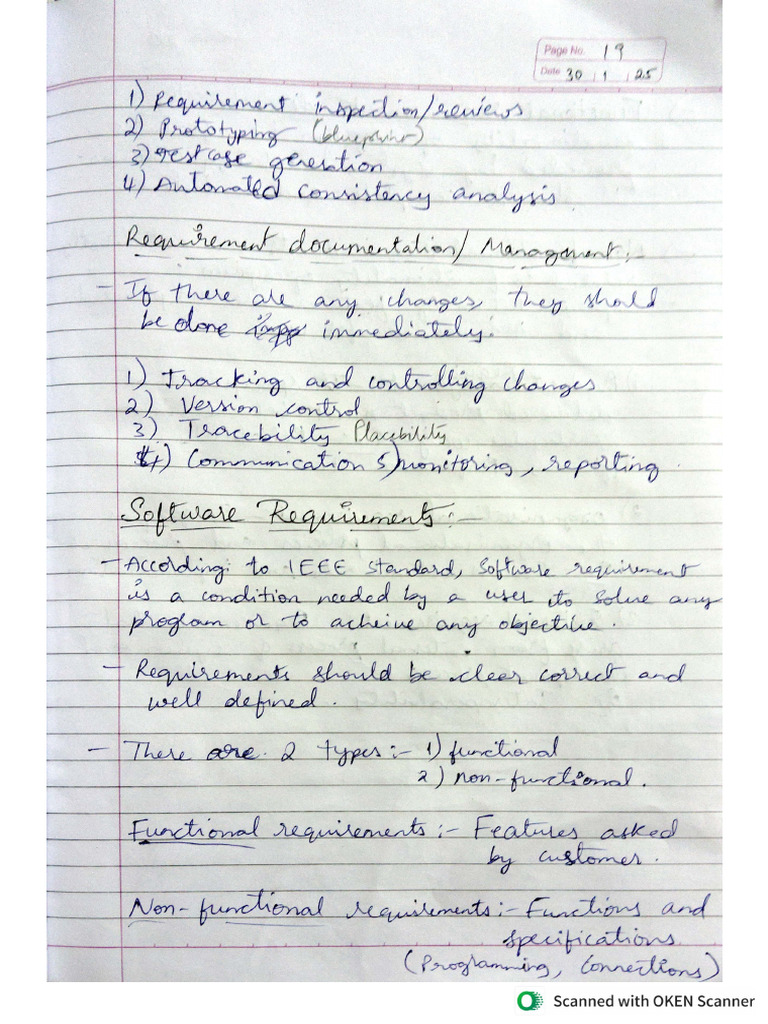 Page No. 19
Date 30 1 25
1) Requirement inspection/reviews
2) Prototyping (blueprint)
3) Test case generation
4) Automated consistency analysis
Requirement documentation/ Management:-
- If there are any changes, they should
be done immediately.
1) Tracking and controlling changes
2) Version control
3) Tracebility Placebility
4) Communication 5) monitoring, reporting
Software Requirements:-
- According to IEEE standard, software requirement
is a condition needed by a user to solve any
program or to acheive any objective.
- Requirements should be clear correct and
well defined.
- There are 2 types:- 1) functional
2) non-functional.
Functional requirements:- Features asked
by customer.
Non-functional requirements:- Functions and
specifications
(Programming, Connections)
Scanned with OKEN Scanner